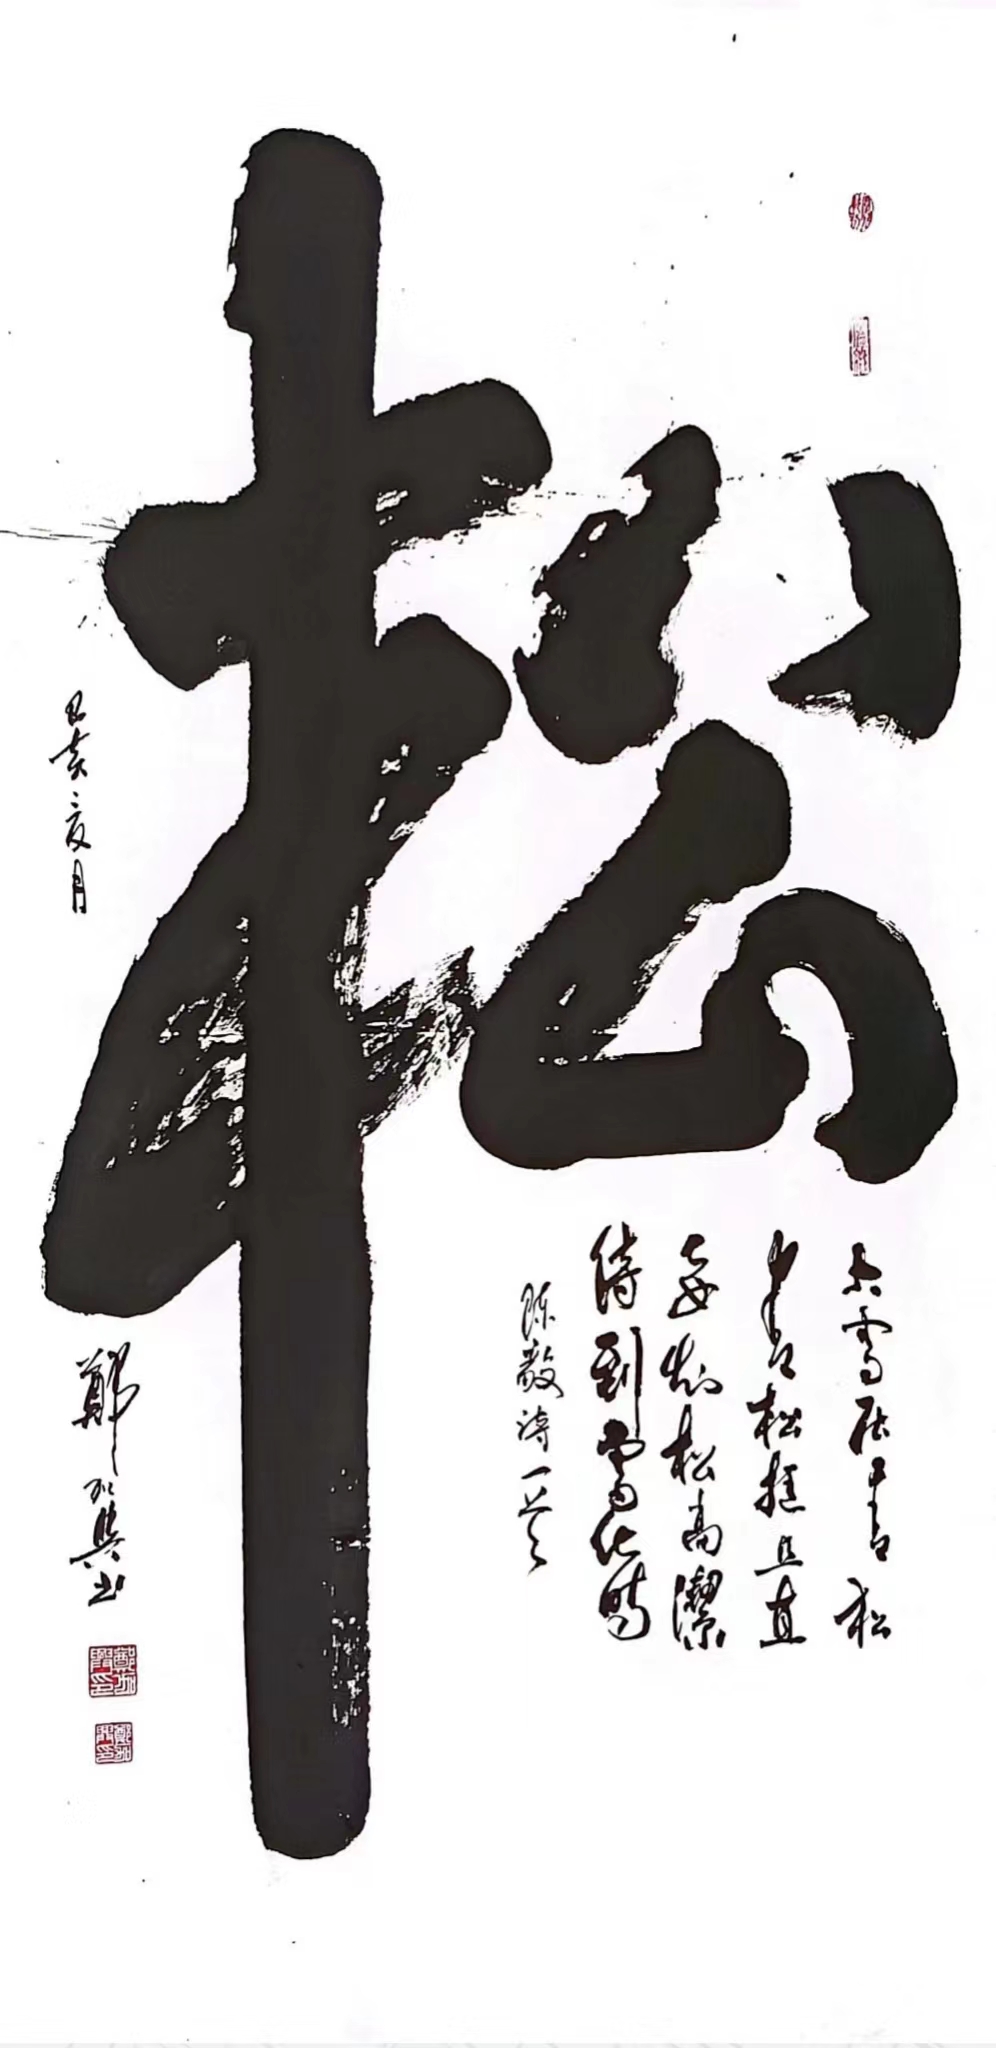 松
大雪压青松
青松挺且直
要知松高潔
待到雪化時
陈毅詩一首
己亥夏月
鄭